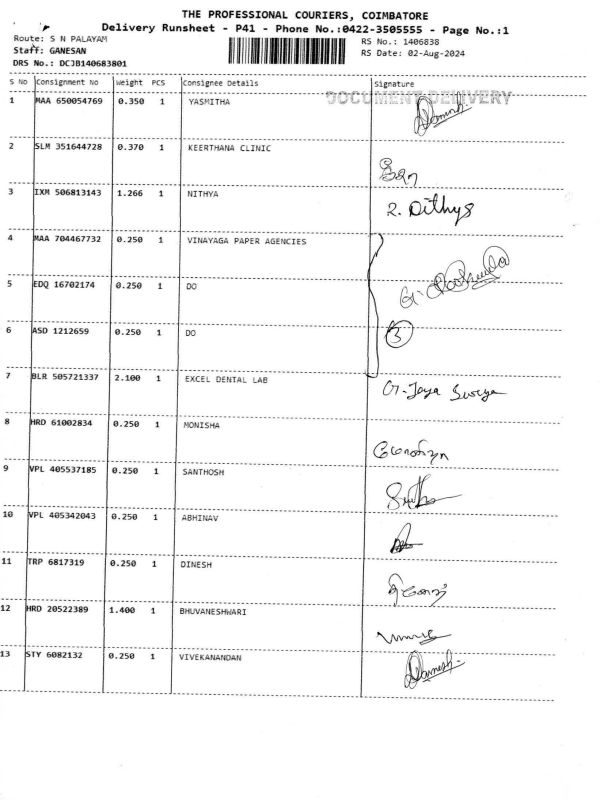 THE PROFESSIONAL COURIERS, COIMBATORE
Delivery Runsheet - P41 - Phone No.:0422-3505555 - Page No.:1
Route: S N PALAYAM
RS No.: 1406838
Staff: GANESAN
RS Date: 02-Aug-2024
DRS No.: DCJB140683801
S No Consignment No Weight PCS Consignee Details Signature
DOCUMENT DELIVERY
1 MAA 650054769 0.350 1 YASMITHA
2 SLM 351644728 0.370 1 KEERTHANA CLINIC
3 IXM 506813143 1.266 1 NITHYA
4 MAA 704467732 0.250 1 VINAYAGA PAPER AGENCIES
5 EDQ 16702174 0.250 1 DO
6 ASD 1212659 0.250 1 DO 3
7 BLR 505721337 2.100 1 EXCEL DENTAL LAB G. Jaya Surya
8 HRD 61002834 0.250 1 MONISHA
9 VPL 405537185 0.250 1 SANTHOSH
10 VPL 405342043 0.250 1 ABHINAV
11 TRP 6817319 0.250 1 DINESH
12 HRD 20522389 1.400 1 BHUVANESHWARI
13 STY 6082132 0.250 1 VIVEKANANDAN